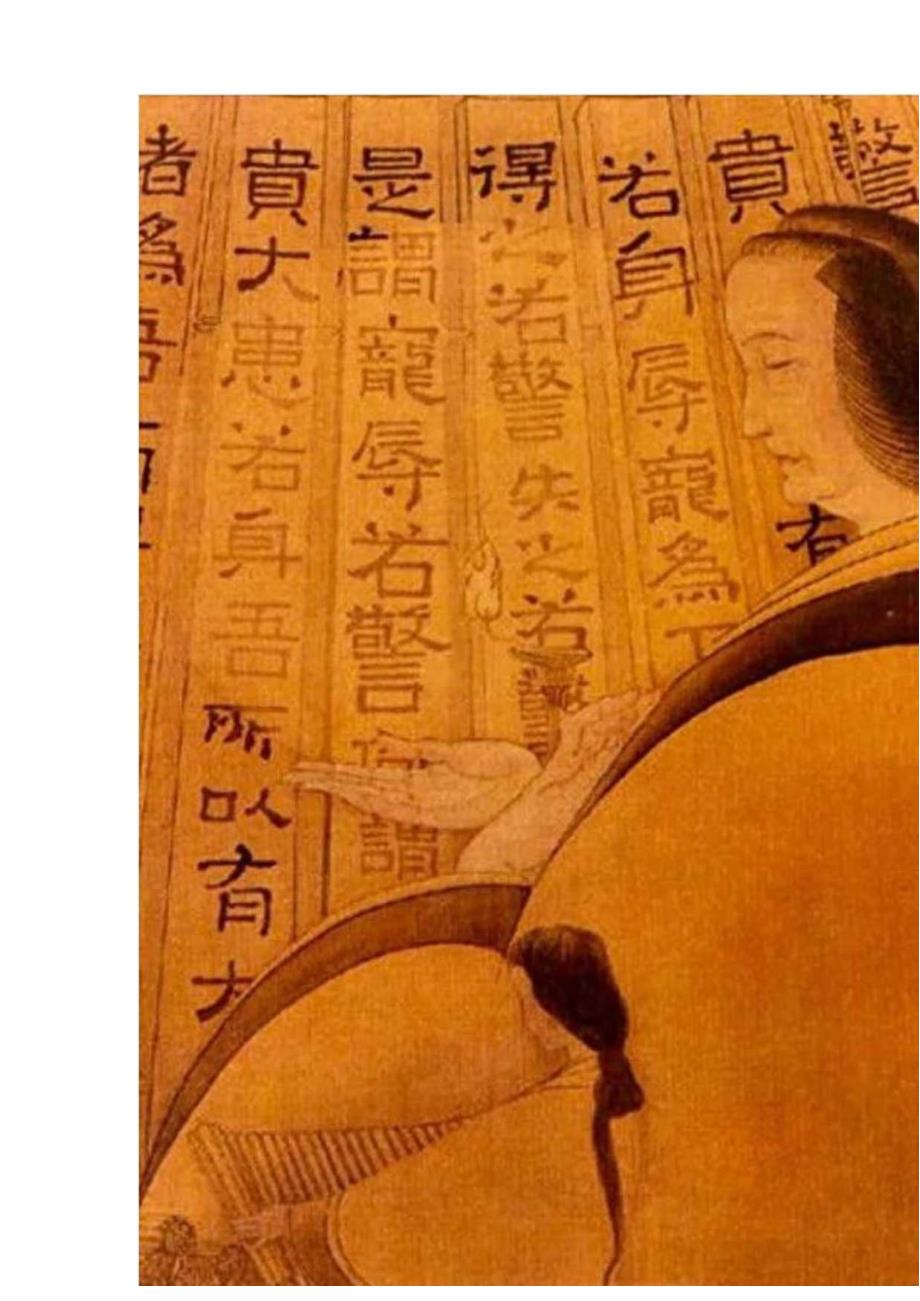 警
貴有
若身辱寵為下
得之若警失之若警
是謂寵辱若警何謂
貴大患若身吾所以有大
者為吾有